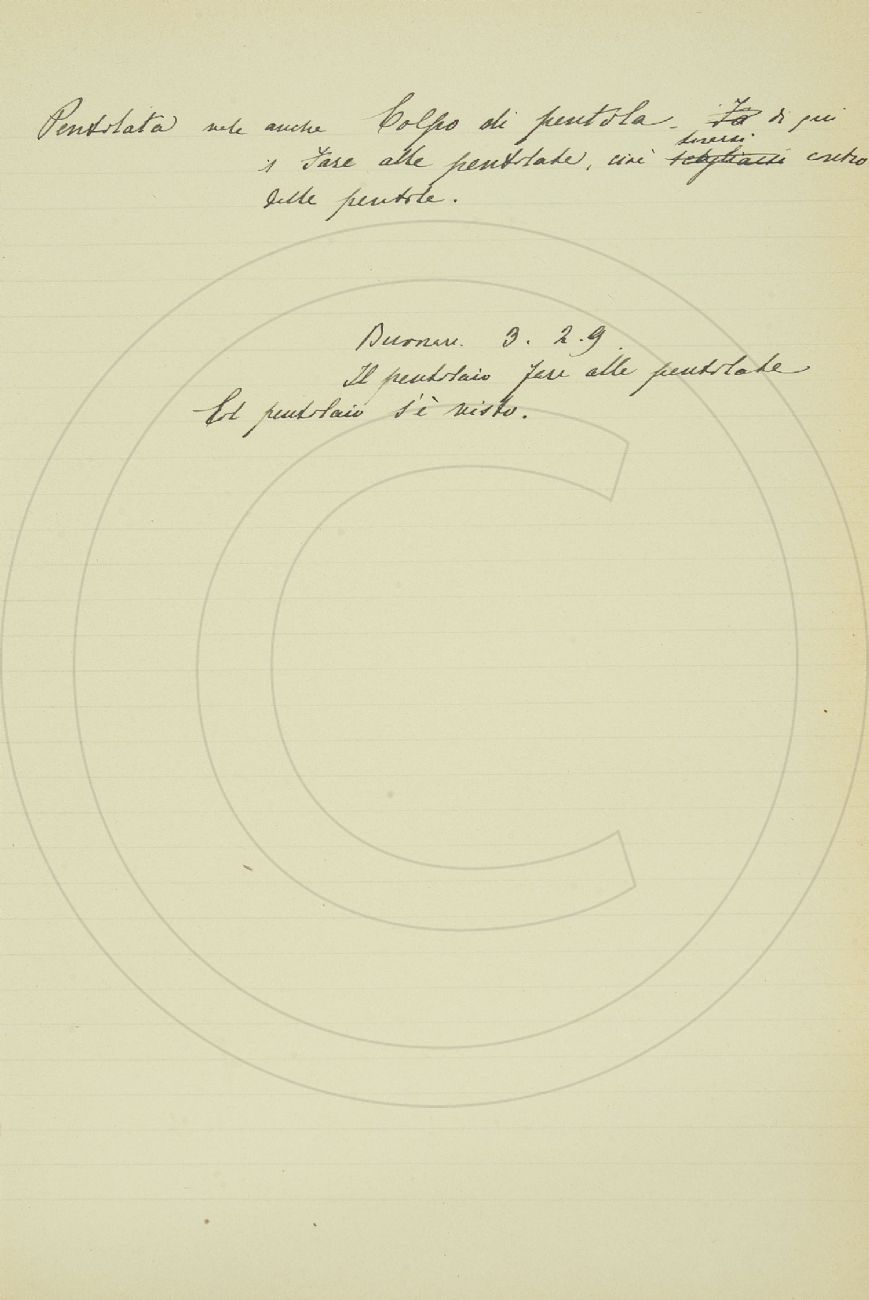 Pentolata vale anche Colpo di pentola. Fa di qui
si Fare alle pentolate, cioè tirarsi scagliarsi contro
delle pentole.
Buonarr. 3. 2. 9.
Il pentolaio fare alle pentolate
Col pentolaio s'è visto.